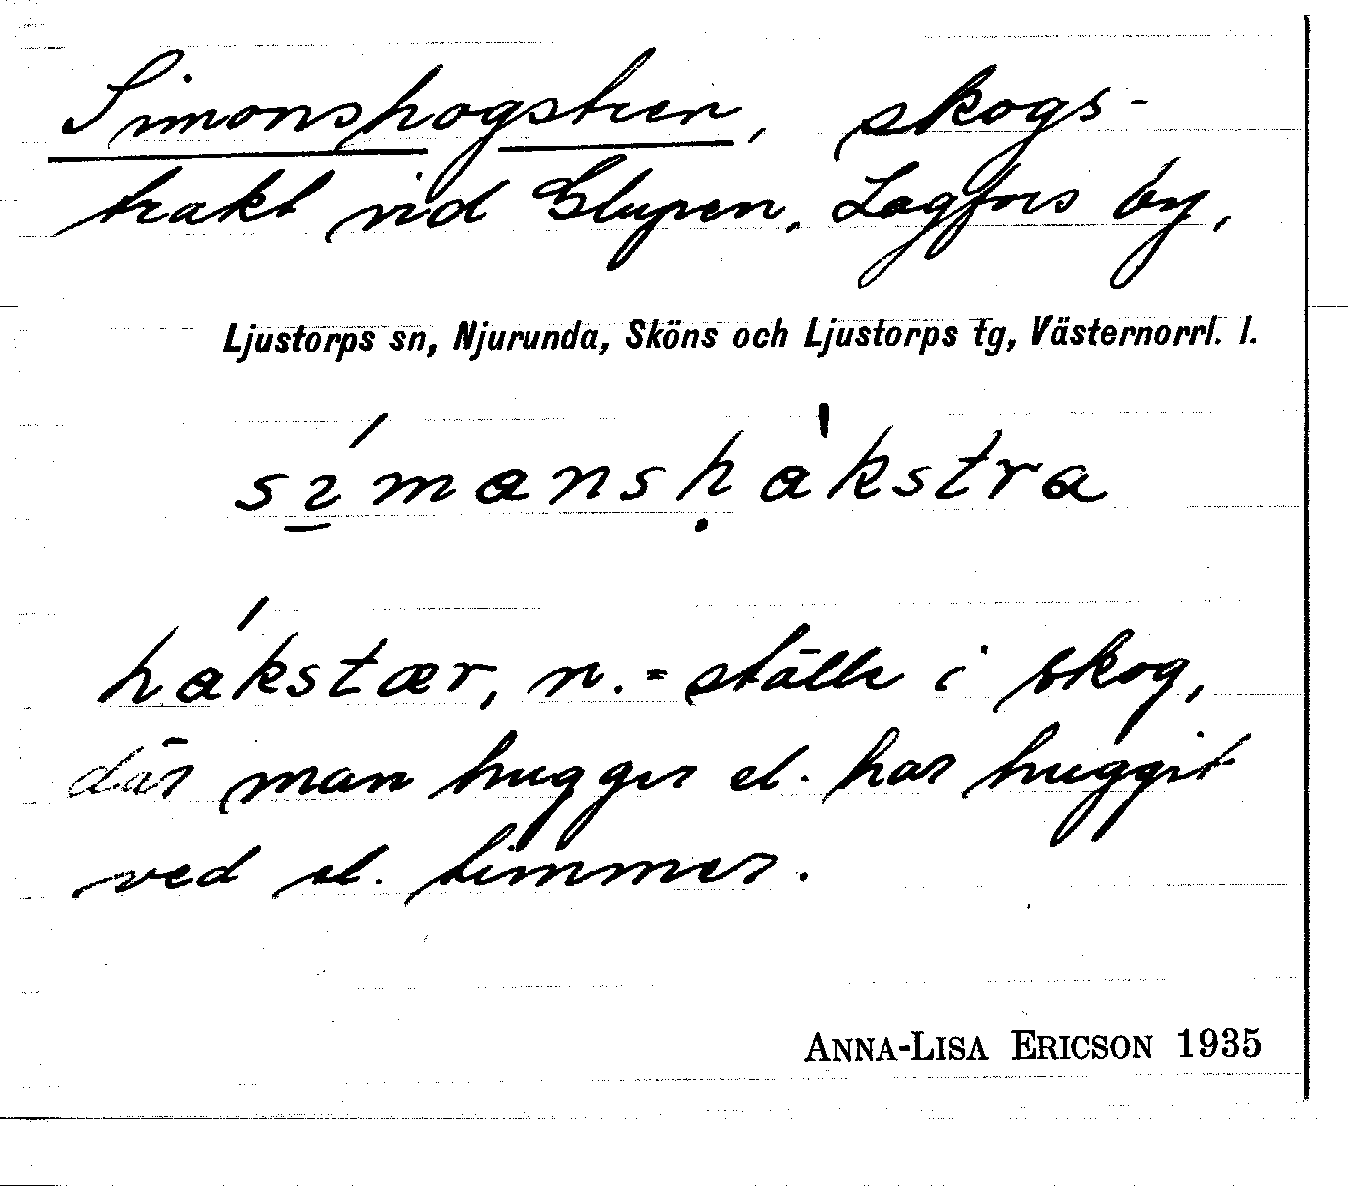 Simonshogstren, skogs-
trakt vid Glupen, Lagfors by,
Ljustorps sn, Njurunda, Sköns och Ljustorps tg, Västernorrl. l.
símanshákstra
hákstær, n. = ställe i skog,
där man hugger el. har huggit
ved el. timmer.
ANNA-LISA ERICSON 1935